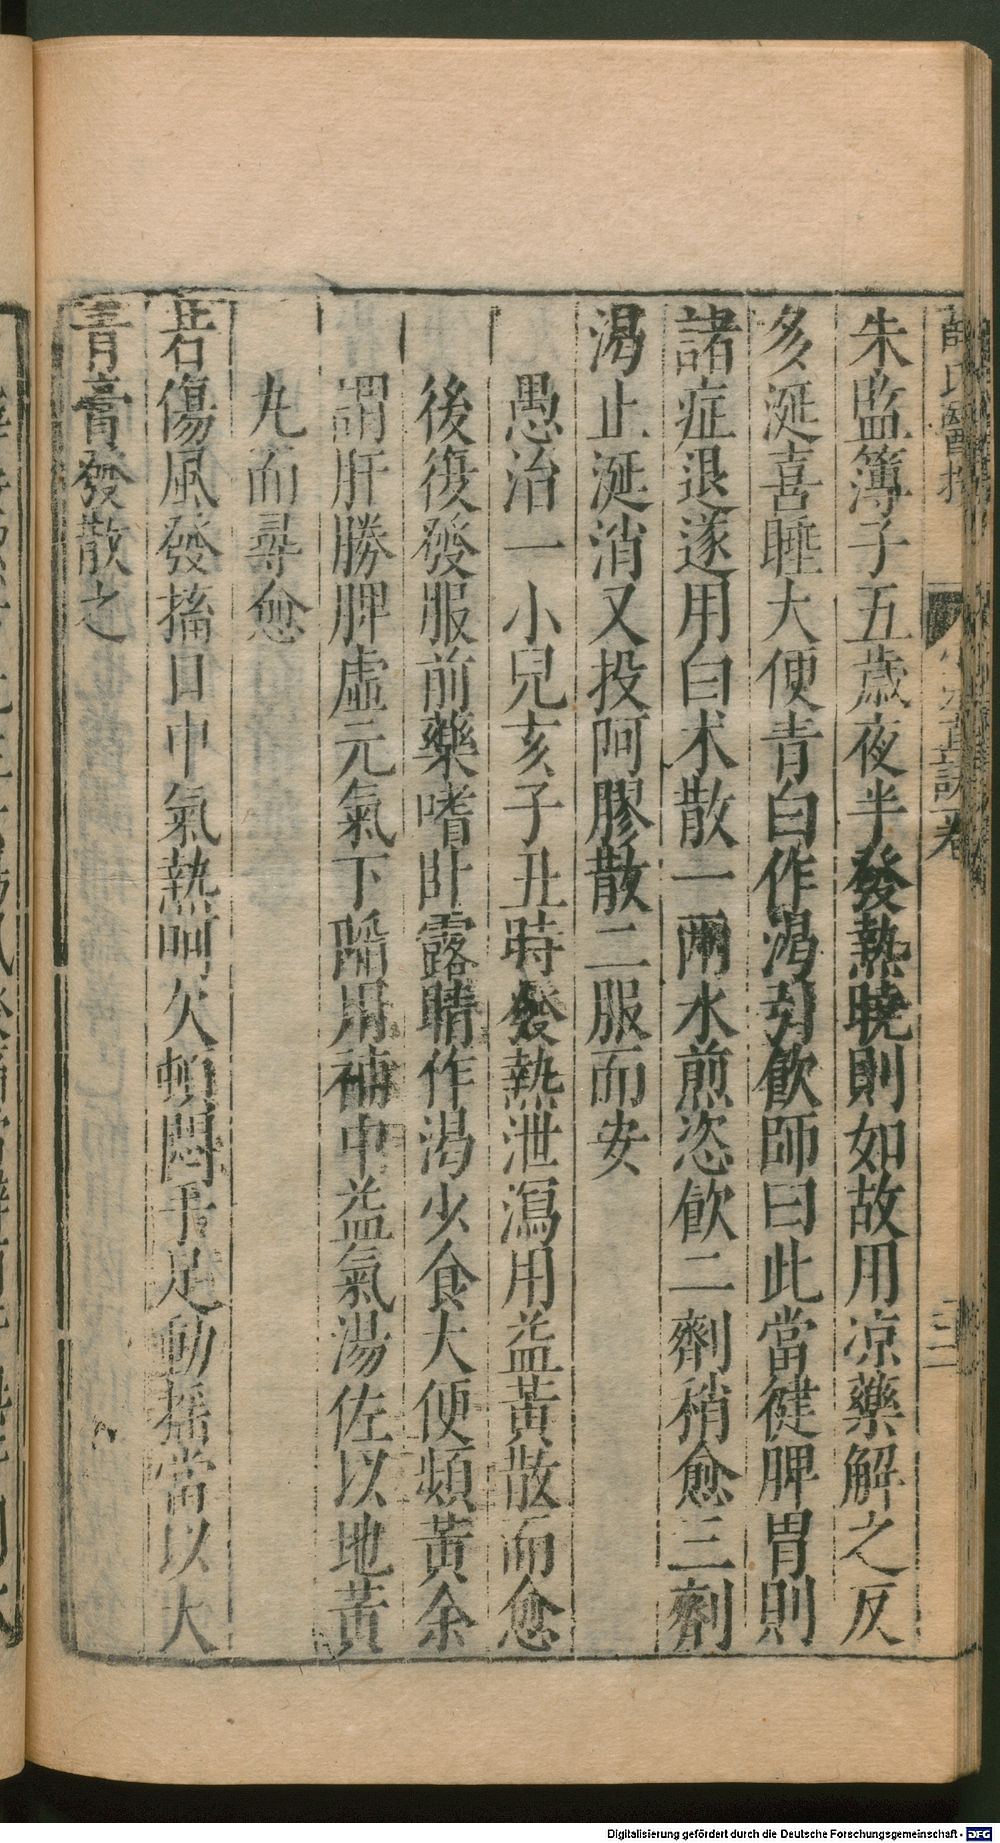 朱監簿子五歲夜半發熱曉則如故用凉藥解之反
多涎喜睡大便青白作渴引飲師曰此當健脾胃則
諸症退遂用白术散一兩水煎恣飲二劑稍愈三劑
渴止涎消又投阿膠散二服而安
愚治一小兒亥子丑時發熱泄瀉用益黃散而愈
後復發服前藥嗜卧露睛作渴少食大便頻黃余
謂肝勝脾虛元氣下陷用補中益氣湯佐以地黃
丸而尋愈
若傷風發搐口中氣熱呵欠頓悶手足動搖當以大
青膏發散之
Digitalisierung gefördert durch die Deutsche Forschungsgemeinschaft - DFG